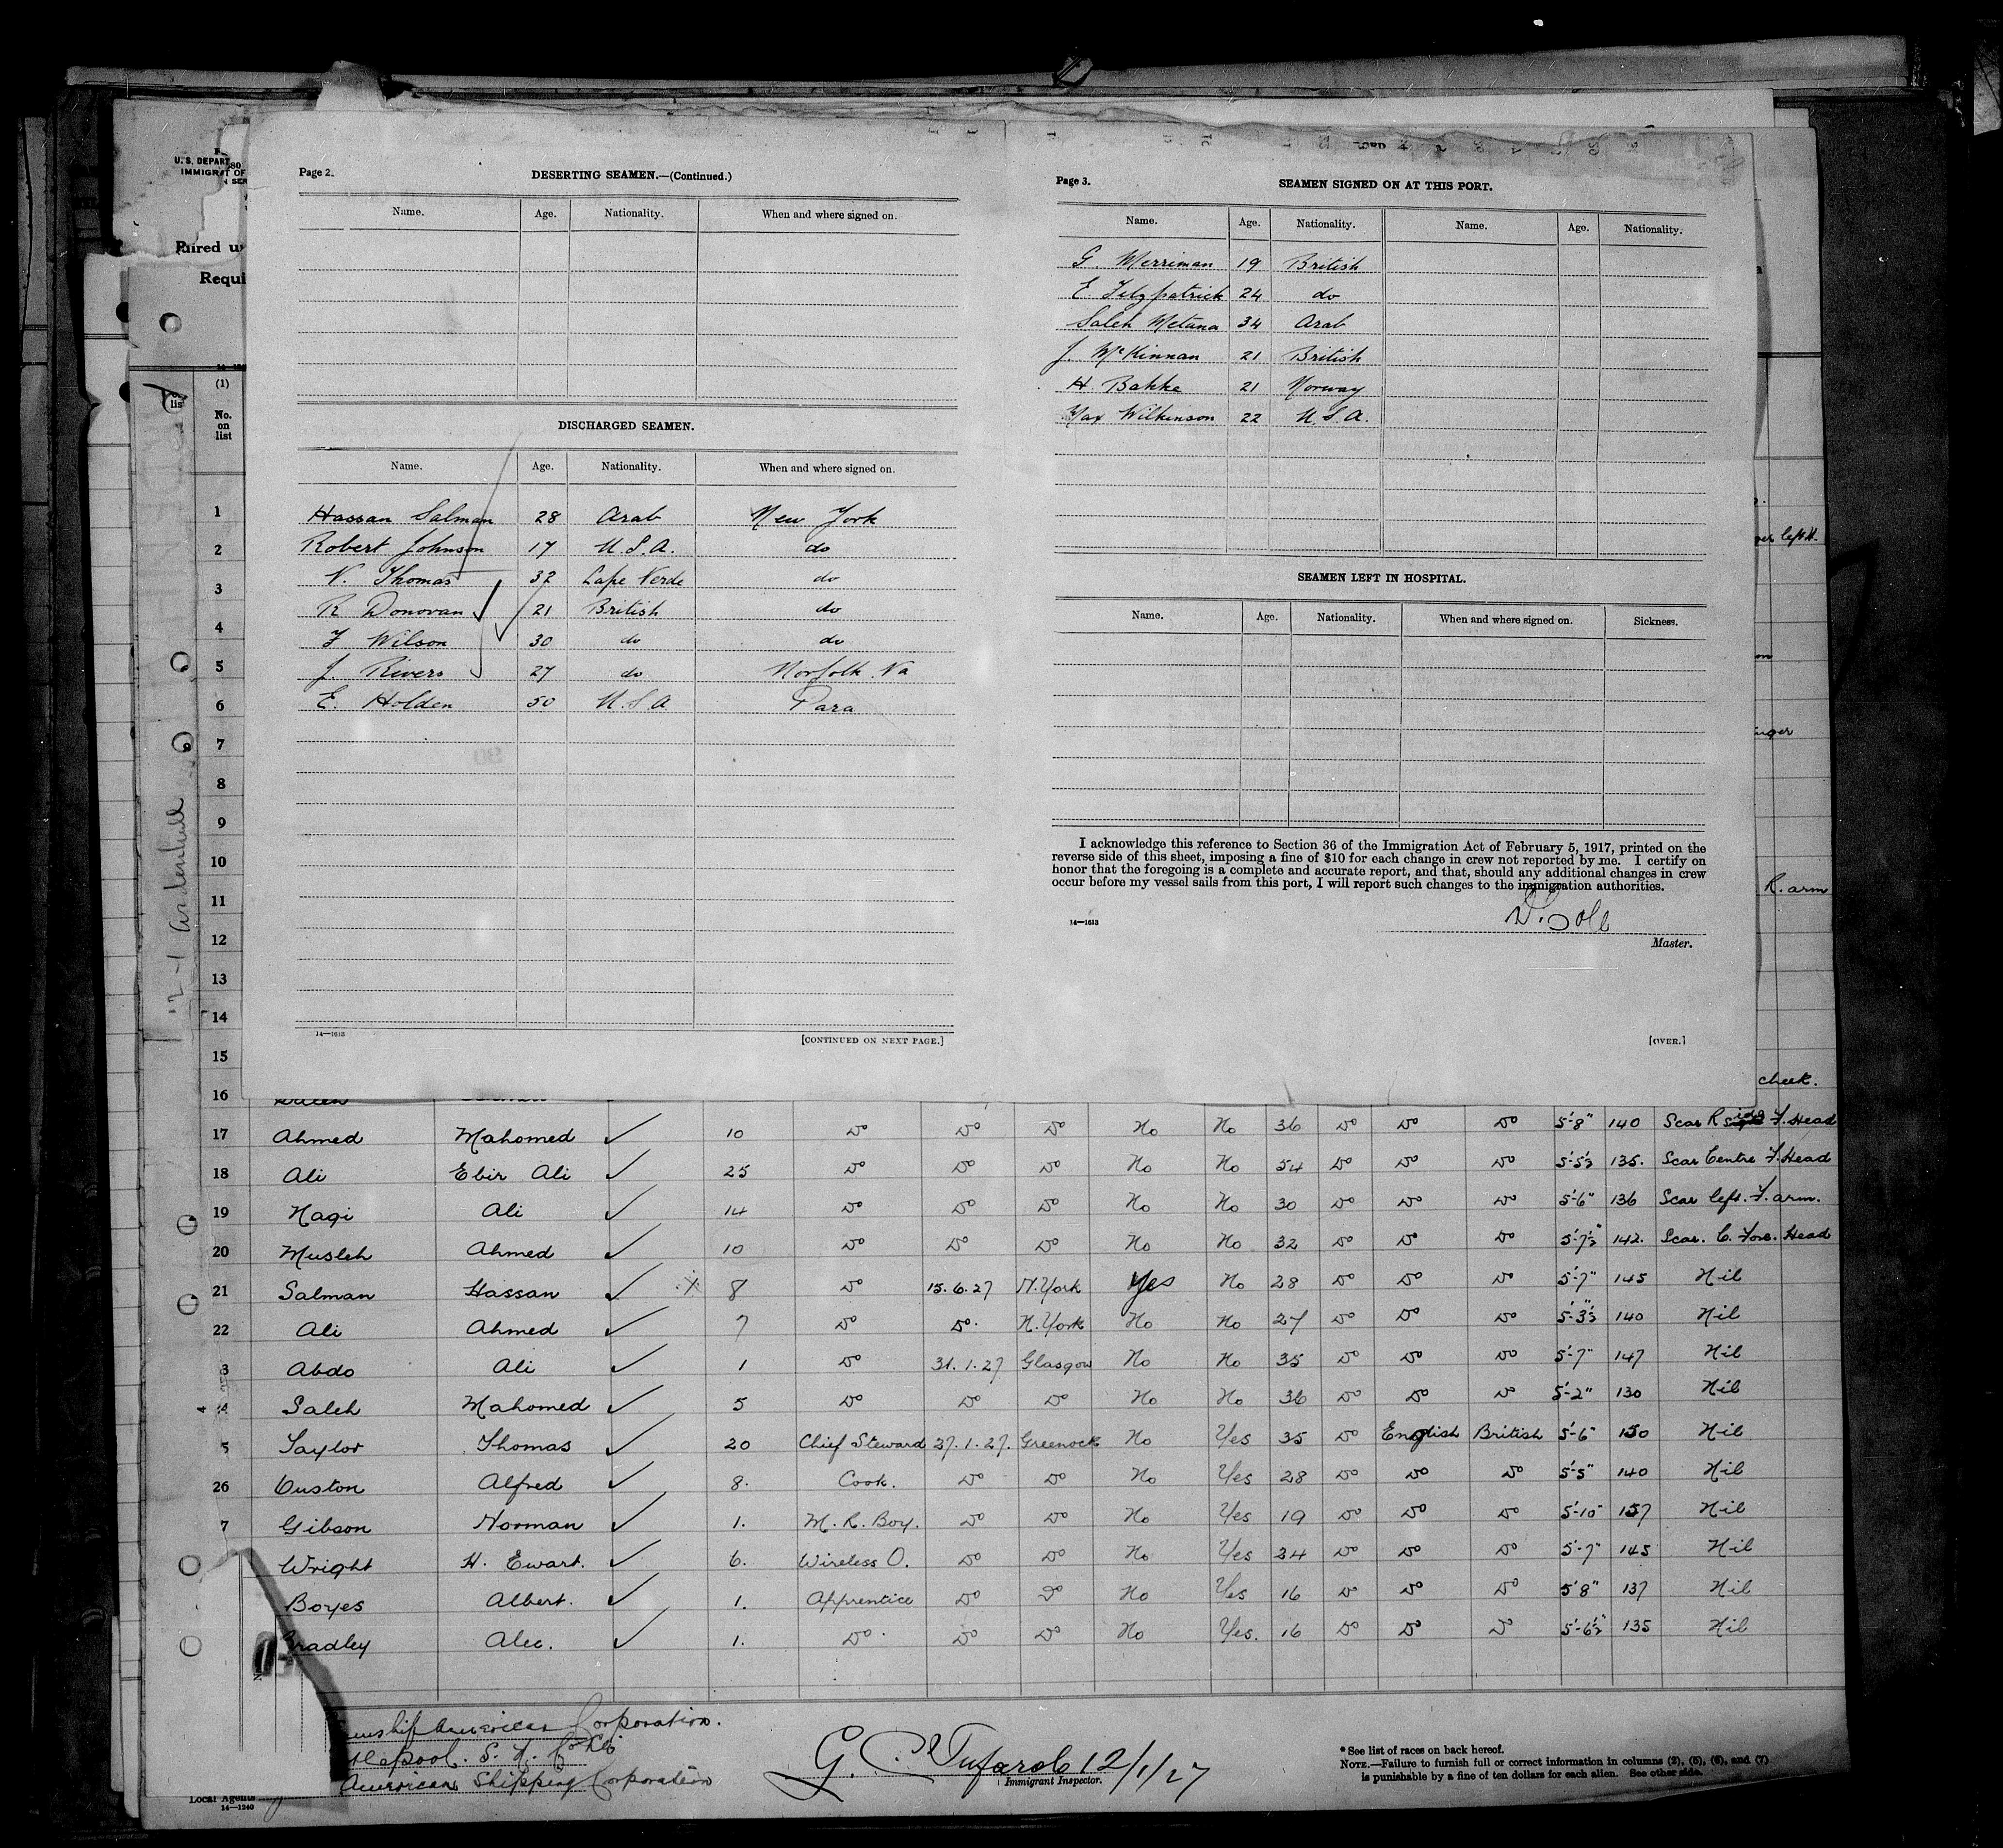 U.S. DEPART
IMMIGRAT OF
Requi
Page 2.
DESERTING SEAMEN.—(Continued.)
Name. Age. Nationality. When and where signed on.
DISCHARGED SEAMEN.
Name. Age. Nationality. When and where signed on.
Hassan Salman 28 Arab New York
Robert Johnson 17 U.S.A. do
V. Thomas 32 Cape Verde do
R Donovan 21 British do
F Wilson 30 do do
J. Rivers 27 do Norfolk Va
E. Holden 50 U.S.A Para
14—1613
[CONTINUED ON NEXT PAGE.]
Page 3.
SEAMEN SIGNED ON AT THIS PORT.
Name. Age. Nationality. Name. Age. Nationality.
G. Merriman 19 British
E Fitzpatrick 24 do
Saleh Metana 34 Arab
J. McKinnan 21 British
H. Bakke 21 Norway
Max Wilkinson 22 U.S.A.
SEAMEN LEFT IN HOSPITAL.
Name. Age. Nationality. When and where signed on. Sickness.
I acknowledge this reference to Section 36 of the Immigration Act of February 5, 1917, printed on the
reverse side of this sheet, imposing a fine of $10 for each change in crew not reported by me. I certify on
honor that the foregoing is a complete and accurate report, and that, should any additional changes in crew
occur before my vessel sails from this port, I will report such changes to the immigration authorities.
14—1613
Master.
[OVER.]
(1)
No.
on
list
1
2
3
4
5
6
7
8
9
10
11
12
13
14
15
16
left H.
R. arm
cheek.
17 Ahmed Mahomed ✓ 10 Do Do Do No No 36 Do Do Do 5'-8" 140 Scar R side F. Head
18 Ali Ebir Ali ✓ 25 Do Do Do No No 54 Do Do Do 5'-5½ 135. Scar Centre F. Head
19 Nagi Ali ✓ 14 Do Do Do No No 30 Do Do Do 5'-6" 136 Scar left. F. arm.
20 Musleh Ahmed ✓ 10 Do Do Do No No 32 Do Do Do 5'-7½" 142. Scar. C. Fore. Head
21 Salman Hassan ✓ x 8 Do 15.6.27 N.York Yes No 28 Do Do Do 5'-7" 145 Nil
22 Ali Ahmed ✓ 7 Do Do. N.York No No 27 Do Do Do 5'-3½" 140 Nil
3 Abdo Ali ✓ 1 Do 31.1.27 Glasgow No No 35 Do Do Do 5'-7" 147 Nil
4 Saleh Mahomed ✓ 5 Do Do Do No No 36 Do Do Do 5'-2" 130 Nil
5 Taylor Thomas ✓ 20 Chief Steward 27.1.27. Greenock No Yes 35 Do English British 5'-6" 150 Nil
26 Ouston Alfred ✓ 8. Cook. Do Do No Yes 28 Do Do Do 5'-5" 140 Nil
7 Gibson Norman ✓ 1. M. R. Boy. Do Do No Yes 19 Do Do Do 5'-10" 157 Nil
Wright H. Ewart. ✓ 6. Wireless O. Do Do No Yes 24 Do Do Do 5'-7" 145 Nil
Boyes Albert. ✓ 1. Apprentice Do Do No Yes 16 Do Do Do 5'8" 137 Nil
Bradley Alec. ✓ 1. Do. Do Do No Yes. 16 Do Do Do 5'-6½" 135 Nil
American Corporation.
American Shipping Corporation
Local Agents
14—1240
12/1/27
Immigrant Inspector.
* See list of races on back hereof.
NOTE.—Failure to furnish full or correct information in columns (2), (5), (6), and (7)
is punishable by a fine of ten dollars for each alien. See other side.